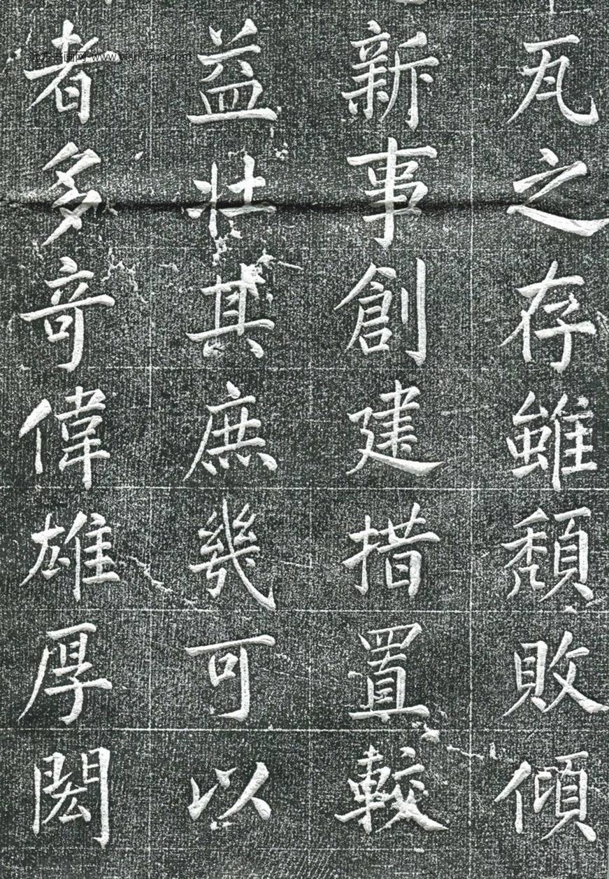 瓦之存雖頹敗傾
新事創建措置較
益壯其庶幾可以
者多竒偉雄厚閎